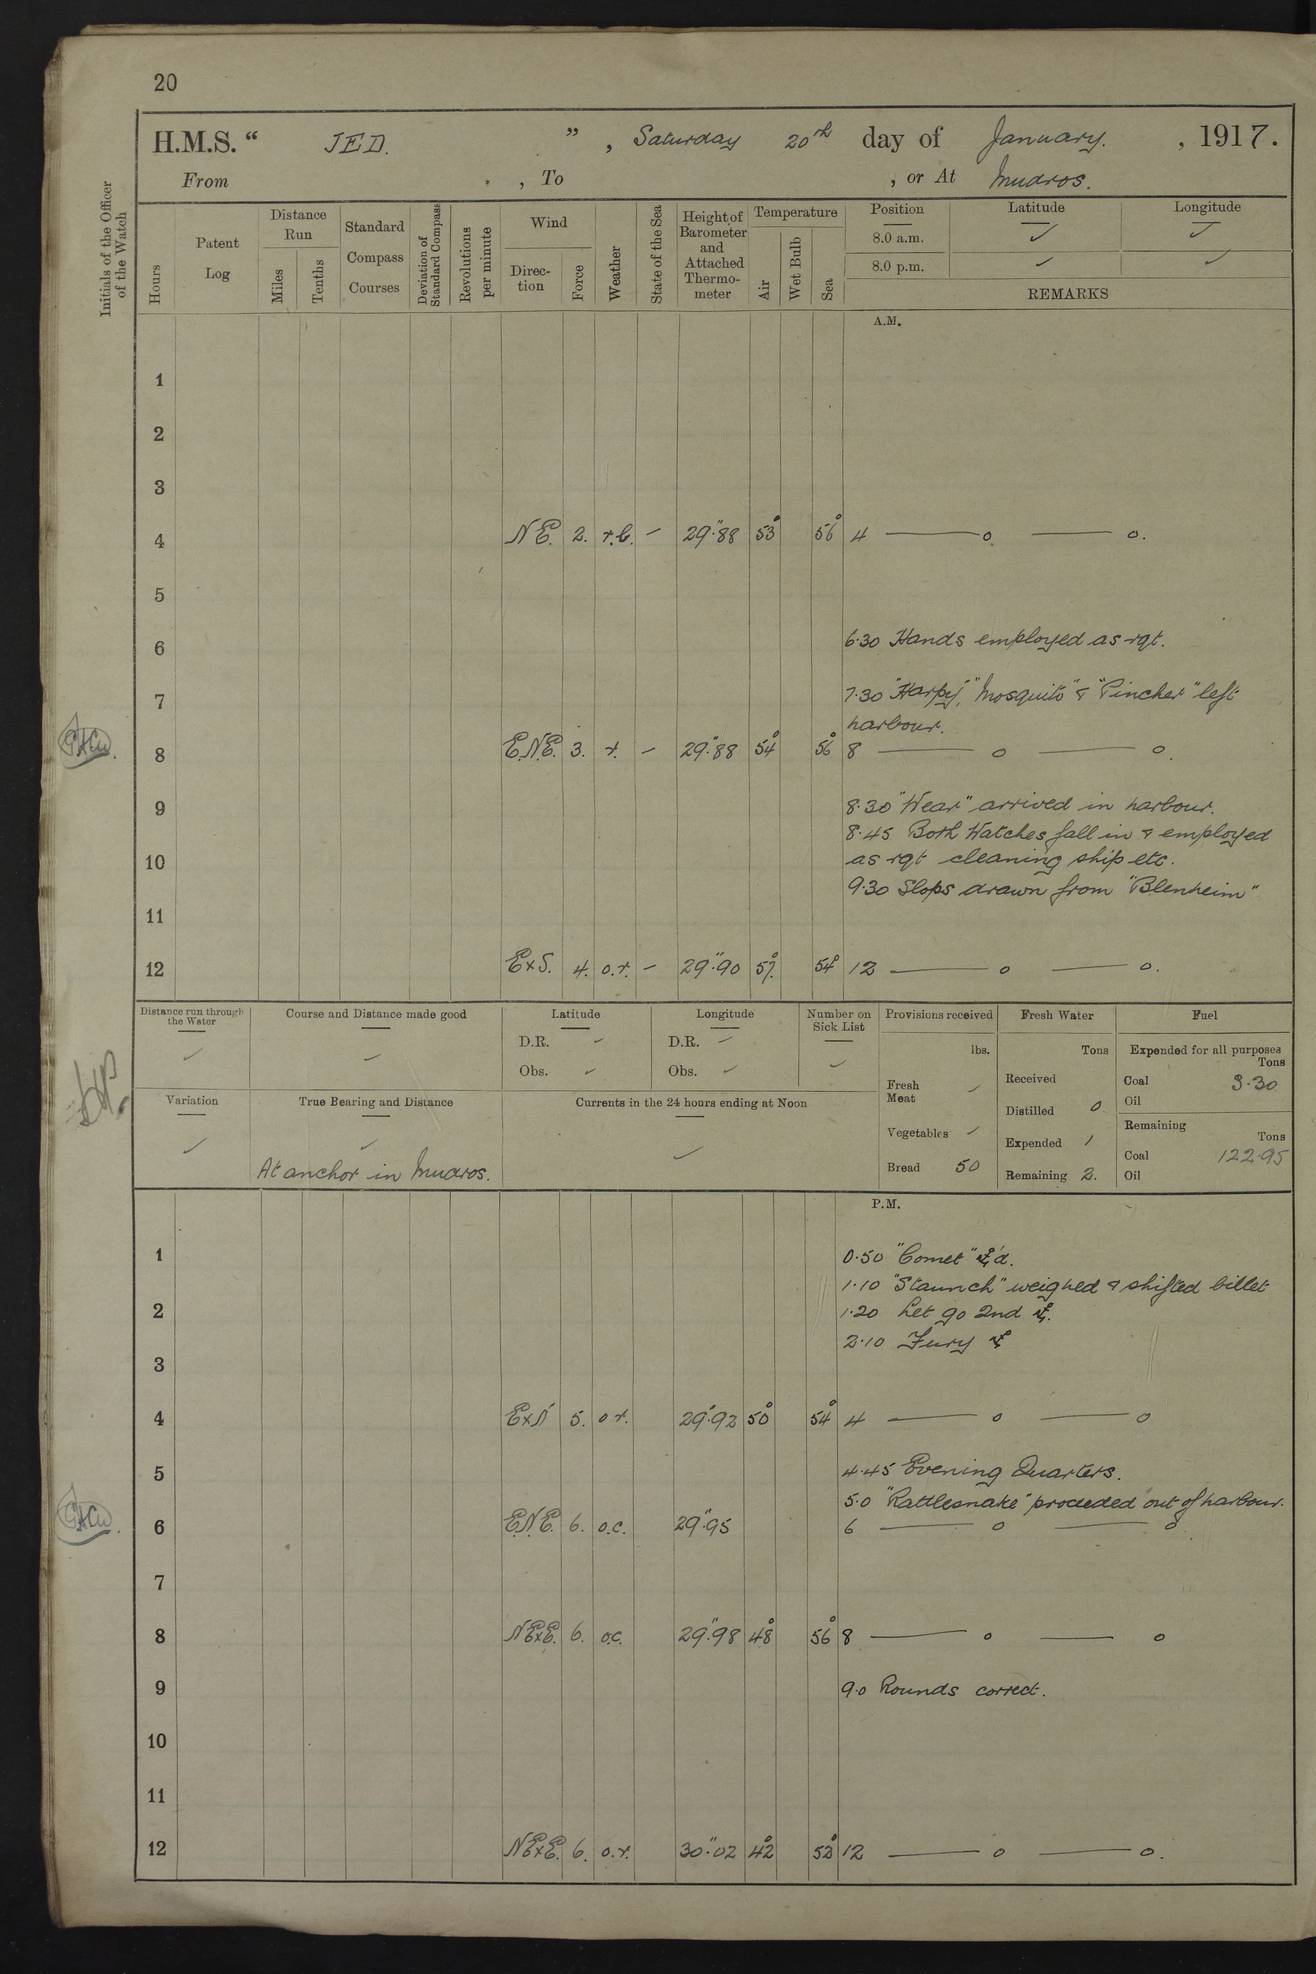 20
H.M.S. “ JED. ” , Saturday 20th day of January. , 1917.
From , To , or At Mudros.
Initials of the Officer of the Watch
Hours
Patent Log
Distance Run
Miles
Tenths
Standard Compass Courses
Deviation of Standard Compass
Revolutions per minute
Wind
Direction
Force
Weather
State of the Sea
Height of Barometer and Attached Thermometer
Temperature
Air
Wet Bulb
Sea
Position Latitude Longitude
8.0 a.m. ✓ ✓
8.0 p.m. ✓ ✓
REMARKS
A.M.
1
2
3
4 NE. 2. r.b. – 29".88 53° 56° 4 —— o. —— o.
5
6 6.30 Hands employed as rqt.
7 7.30 "Harpy", "Mosquito" & "Pincher" left
harbour.
8 E.N.E. 3. r. – 29".88 54° 56° 8 —— o —— o.
9 8.30 "Wear" arrived in harbour.
8.45 Both Watches fall in & employed
10 as rqt cleaning ship etc.
9.30 Slops drawn from "Blenheim"
11
12 ExS. 4. o.r. – 29".90 51°. 54° 12 —— o —— o.
Distance run through the Water ✓
Course and Distance made good ✓
Latitude
D.R. ✓
Obs. ✓
Longitude
D.R. ✓
Obs. ✓
Number on Sick List ✓
Provisions received
lbs.
Fresh Meat ✓
Vegetables ✓
Bread 50
Fresh Water
Tons
Received
Distilled 0
Expended 1
Remaining 2.
Fuel
Expended for all purposes
Tons
Coal 3.30
Oil
Remaining
Tons
Coal 122.95
Oil
Variation ✓
True Bearing and Distance ✓
At anchor in Mudros.
Currents in the 24 hours ending at Noon ✓
P.M.
1 0.50 "Comet" ⚓'d.
1.10 "Staunch" weighed & shifted billet
2 1.20 Let go 2nd ⚓.
2.10 Fury ⚓
3
4 ExN 5. o r. 29".92 50° 54° 4 —— o —— o
5 4.45 Evening Quarters.
5.0 "Rattlesnake" proceeded out of harbour.
6 E.N.E. 6. o.c. 29".95 6 —— o —— o
7
8 NExE. 6. o.c. 29".98 48° 56° 8 —— o —— o
9 9.0 Rounds correct.
10
11
12 NExE. 6. o.r. 30".02 42° 52° 12 —— o —— o.